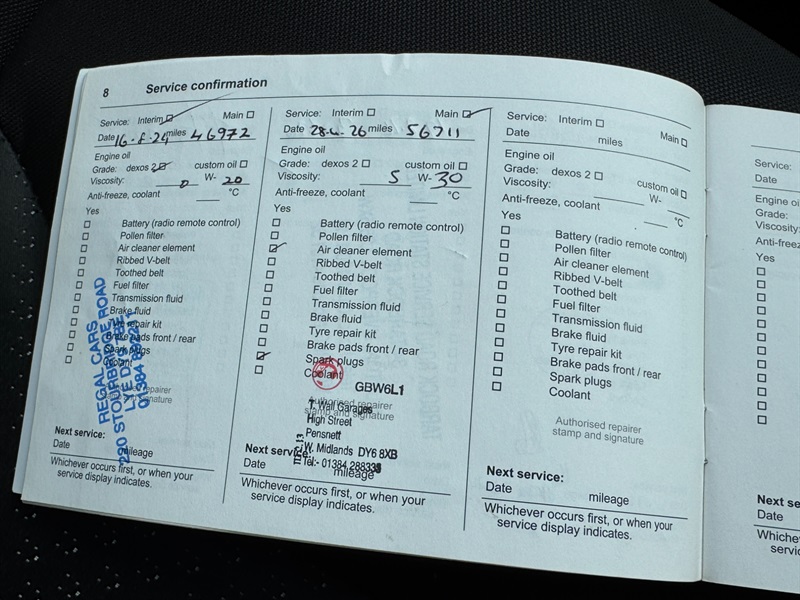 8 Service confirmation
Service: Interim Main
Date 16- -24 miles 46972
Engine oil
Grade: dexos 2 custom oil
Viscosity: 0 W- 20
Anti-freeze, coolant °C
Yes
Battery (radio remote control)
Pollen filter
Air cleaner element
Ribbed V-belt
Toothed belt
Fuel filter
Transmission fluid
Brake fluid
Tyre repair kit
Brake pads front / rear
Spark plugs
Coolant
REGAL CARS
290 STOURBRIDGE ROAD
LYE
01384
Authorised repairer
stamp and signature
Next service:
Date mileage
Whichever occurs first, or when your
service display indicates.
Service: Interim Main
Date 28.4.26 miles 56711
Engine oil
Grade: dexos 2 custom oil
Viscosity: 5 W- 30
Anti-freeze, coolant °C
Yes
Battery (radio remote control)
Pollen filter
Air cleaner element
Ribbed V-belt
Toothed belt
Fuel filter
Transmission fluid
Brake fluid
Tyre repair kit
Brake pads front / rear
Spark plugs
Coolant
GBW6L1
Authorised repairer
stamp and signature
T. Wall Garages
High Street
Pensnett
W. Midlands DY6 8XB
Tel:- 01384 288333
Next service:
Date mileage
Whichever occurs first, or when your
service display indicates.
Service: Interim Main
Date miles
Engine oil
Grade: dexos 2 custom oil
Viscosity: W-
Anti-freeze, coolant °C
Yes
Battery (radio remote control)
Pollen filter
Air cleaner element
Ribbed V-belt
Toothed belt
Fuel filter
Transmission fluid
Brake fluid
Tyre repair kit
Brake pads front / rear
Spark plugs
Coolant
Authorised repairer
stamp and signature
Next service:
Date mileage
Whichever occurs first, or when your
service display indicates.
Service:
Date
Engine oil
Grade:
Viscosity:
Anti-freeze
Yes
Next se
Date
Whichev
servic